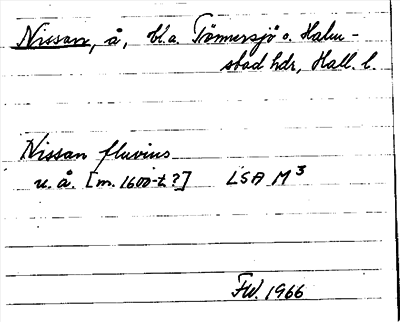 Nissan, å, bl.a. Tönnersjö o. Halm-
stad hdr, Hall. l.
Nissan fluvius
u. å. [m. 1600-t?] LSA M³
FW. 1966